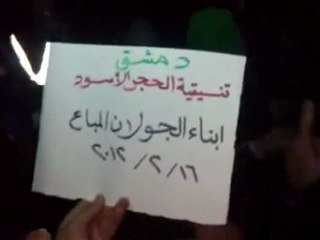 دمشق
تنسيقية الحجر الأسود
ابناء الجولان المباع
١٦ / ٢ / ٢٠١٢